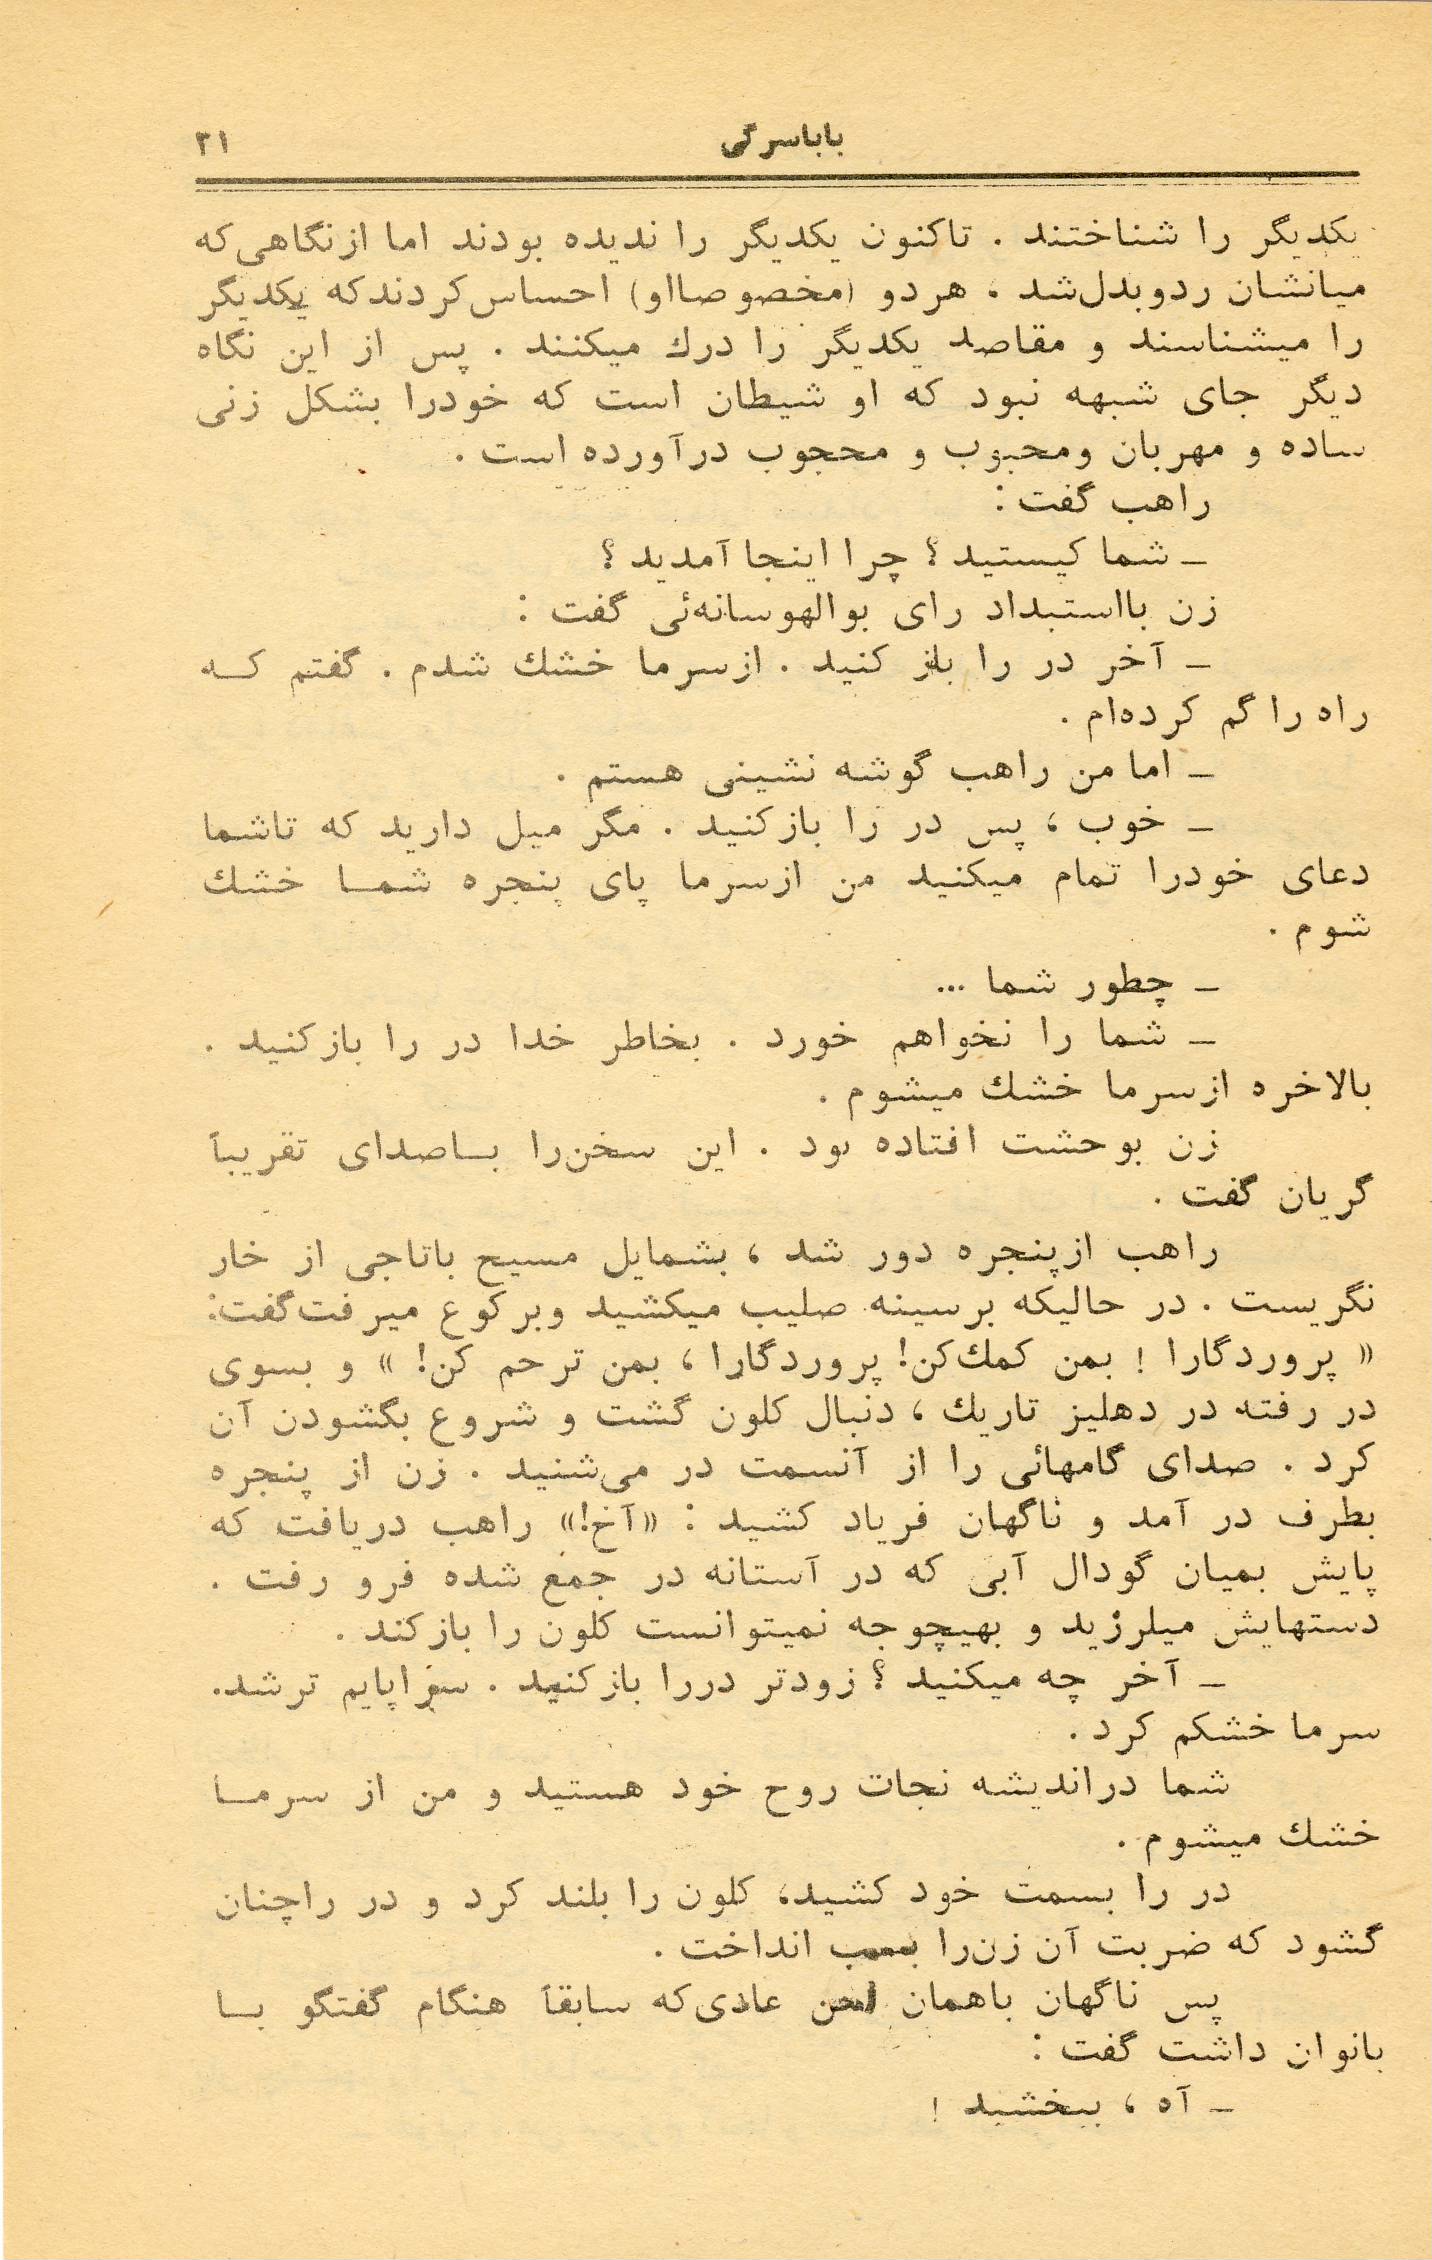 باباسرگی
۳۱
یکدیگر را شناختند . تاکنون یکدیگر را ندیده بودند اما ازنگاهی‌که
میانشان ردوبدل‌شد ، هردو (مخصوصااو) احساس‌کردندکه یکدیگر
را میشناسند و مقاصد یکدیگر را درك میکنند . پس از این نگاه
دیگر جای شبهه نبود که او شیطان است که خودرا بشکل زنی
ساده و مهربان ومحبوب و محجوب درآورده است .
راهب گفت :
ـ شما کیستید ؟ چرا اینجا آمدید ؟
زن بااستبداد رای بوالهوسانه‌ئی گفت :
ـ آخر در را باز کنید . ازسرما خشك شدم . گفتم کـه
راه را گم کرده‌ام .
ـ اما من راهب گوشه نشینی هستم .
ـ خوب ، پس در را بازکنید . مگر میل دارید که تاشما
دعای خودرا تمام میکنید من ازسرما پای پنجره شمـا خشك
شوم .
ـ چطور شما ...
ـ شما را نخواهم خورد . بخاطر خدا در را بازکنید .
بالاخره ازسرما خشك میشوم .
زن بوحشت افتاده بود . این سخن‌را بـاصدای تقریباً
گریان گفت .
راهب ازپنجره دور شد ، بشمایل مسیح باتاجی از خار
نگریست . در حالیکه برسینه صلیب میکشید وبرکوع میرفت‌گفت:
« پروردگارا ! بمن کمك‌کن! پروردگارا ، بمن ترحم کن! » و بسوی
در رفته در دهلیز تاریك ، دنبال کلون گشت و شروع بگشودن آن
کرد . صدای گامهائی را از آنسمت در می‌شنید . زن از پنجره
بطرف در آمد و ناگهان فریاد کشید : «آخ!» راهب دریافت که
پایش بمیان گودال آبی که در آستانه در جمع شده فرو رفت .
دستهایش میلرزید و بهیچوجه نمیتوانست کلون را بازکند .
ـ آخر چه میکنید ؟ زودتر دررا بازکنید . سراپایم ترشد.
سرما خشکم کرد .
شما دراندیشه نجات روح خود هستید و من از سرمـا
خشك میشوم .
در را بسمت خود کشید، کلون را بلند کرد و در راچنان
گشود که ضربت آن زن‌را انداخت .
پس ناگهان باهمان لحن عادی‌که سابقاً هنگام گفتگو بـا
بانوان داشت گفت :
ـ آه ، ببخشید !